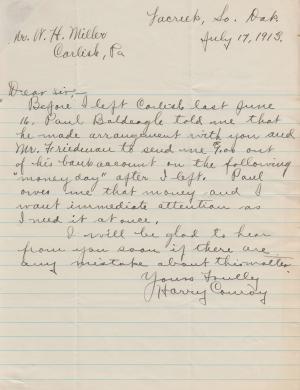 Lacreek, So. Dak
July 17, 1913.
Mr. W. H. Miller
Carlisle, Pa
Dear sir;—
Before I left Carlisle last June
16. Paul Baldeagle told me that
he made arrangement with you and
Mr. Friedman to send me out
of his bank account on the following
"money day" after I left. Paul
owes me that money and I
want immediate attention as
I need it at once.
I will be glad to hear
from you soon if there are
any mistake about this matter.
Yours Truly
Harry Conroy